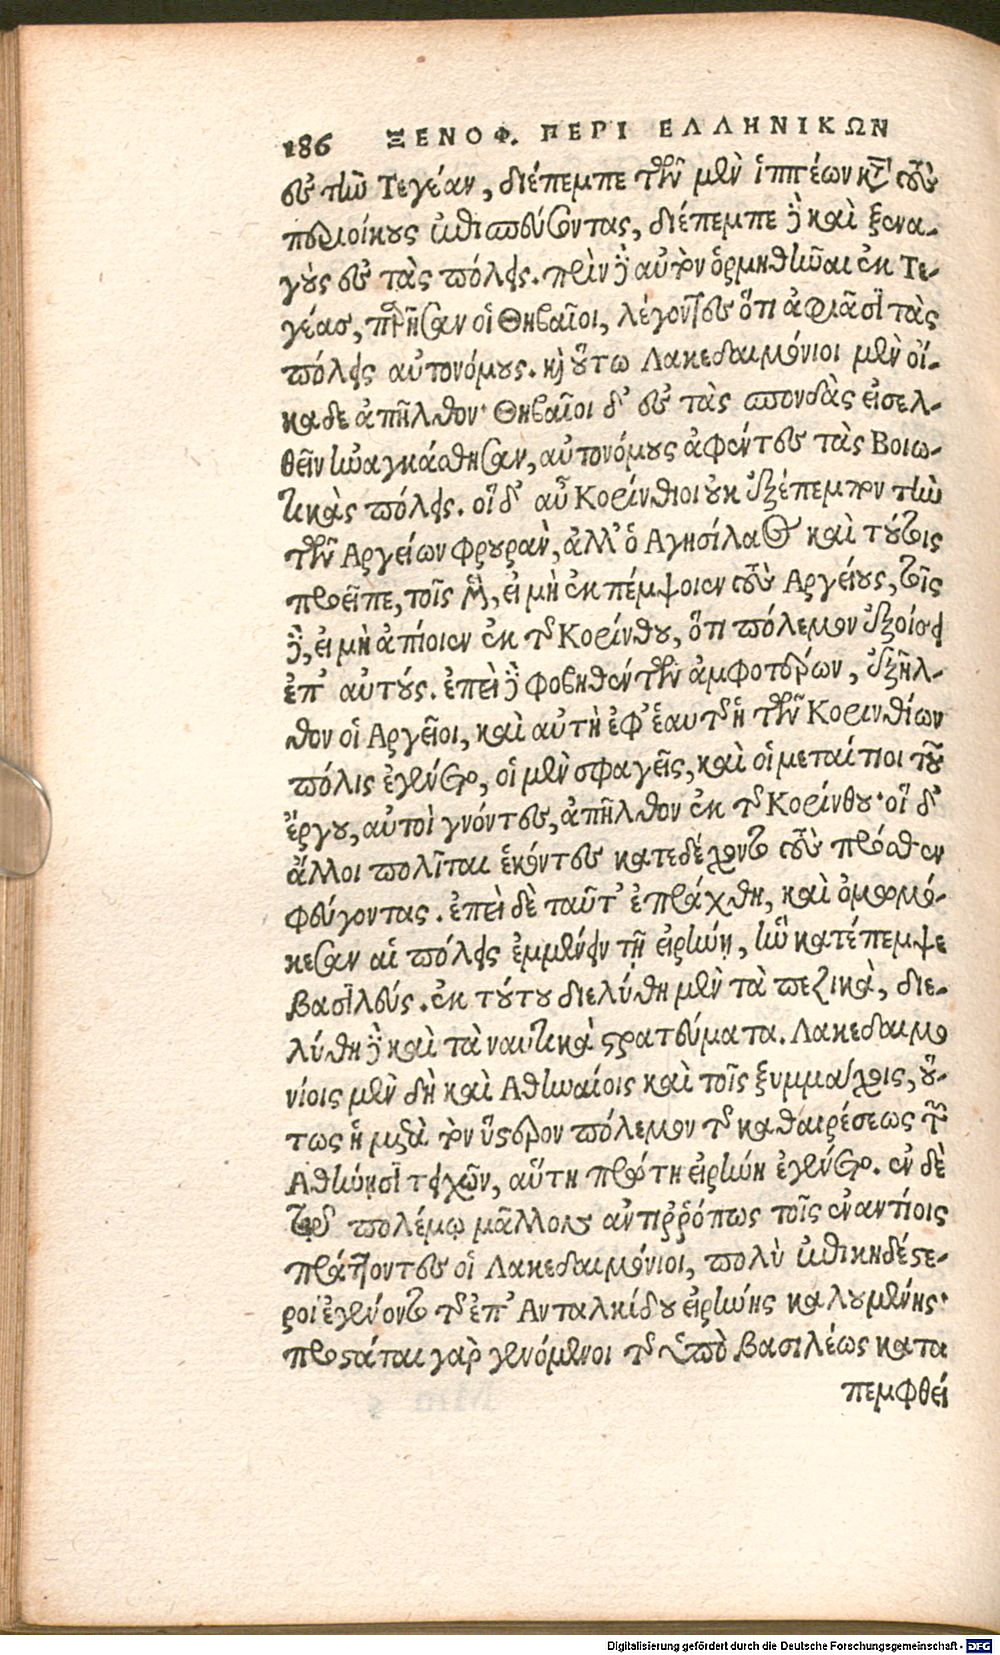 186 ΞΕΝΟΦ. ΠΕΡΙ ΕΛΛΗΝΙΚΩΝ
ες τὴν Τεγέαν, διέπεμπε τῶν μὲν ἱππέων κατὰ τοὺς
περιοίκους ἐπισπεύσοντας, διέπεμπε δὲ καὶ ξενα-
γοὺς ες τὰς πόλεις. πρὶν δὲ αὐτὸν ὁρμηθῆναι ἐκ Τε-
γέας, παρῆσαν οἱ Θηβαῖοι, λέγοντες ὅτι ἀφιᾶσι τὰς
πόλεις αὐτονόμους. καὶ οὕτω Λακεδαιμόνιοι μὲν οἴ-
καδε ἀπῆλθον· Θηβαῖοι δ' ες τὰς σπονδὰς εἰσελ-
θεῖν ἠναγκάσθησαν, αὐτονόμους ἀφέντες τὰς Βοιω-
τικὰς πόλεις. οἵ δ' αὖ Κορίνθιοι οὐκ ἐξέπεμπον τὴν
τῶν Αργείων φρουρὰν, ἀλλ' ὁ Αγησίλαος καὶ τούτοις
προεῖπε, τοῖς μὲν, εἰ μὴ ἐκπέμψοιεν τοὺς Αργείους, τοῖς
δὲ, εἰ μὴ ἀπίοιεν ἐκ τῆς Κορίνθου, ὅτι πόλεμον ἐξοίσει
ἐπ' αὐτούς. ἐπεὶ δὲ φοβηθέντων ἀμφοτέρων, ἐξῆλ-
θον οἱ Αργεῖοι, καὶ αὐτὴ ἐφ' ἑαυτῆς ἡ τῶν Κορινθίων
πόλις ἐγένετο, οἱ μὲν σφαγεῖς, καὶ οἱ μεταίτιοι τοῦ
ἔργου, αὐτοὶ γνόντες, ἀπῆλθον ἐκ τῆς Κορίνθου· οἵ δ'
ἄλλοι πολῖται ἑκόντες κατεδέχοντο τοὺς πρόσθεν
φεύγοντας. ἐπεὶ δὲ ταῦτ' ἐπράχθη, καὶ ὀμωμό-
κεσαν αἱ πόλεις ἐμμένειν τῇ εἰρήνῃ, ἣν κατέπεμψε
βασιλεύς. ἐκ τούτου διελύθη μὲν τὰ πεζικὰ, διε-
λύθη δὲ καὶ τὰ ναυτικὰ στρατεύματα. Λακεδαιμο
νίοις μὲν δὴ καὶ Αθηναίοις καὶ τοῖς ξυμμάχοις, οὕ-
τως ἡ μετὰ τὸν ὕστερον πόλεμον τῆς καθαιρέσεως τῶν
Αθήνῃσι τειχῶν, αὕτη πρώτη εἰρήνη ἐγένετο. ἐν δὲ
τῷ πολέμῳ μᾶλλον αντιῤῥόπως τοῖς ἐναντίοις
πράττοντες οἱ Λακεδαιμόνιοι, πολὺ ἐπικυδέστε-
ροι ἐγένοντο τῆς ἐπ' Ανταλκίδου εἰρήνης καλουμένης·
προστάται γὰρ γενόμενοι τῆς ὑπὸ βασιλέως κατα
πεμφθεί
Digitalisierung gefördert durch die Deutsche Forschungsgemeinschaft - DFG